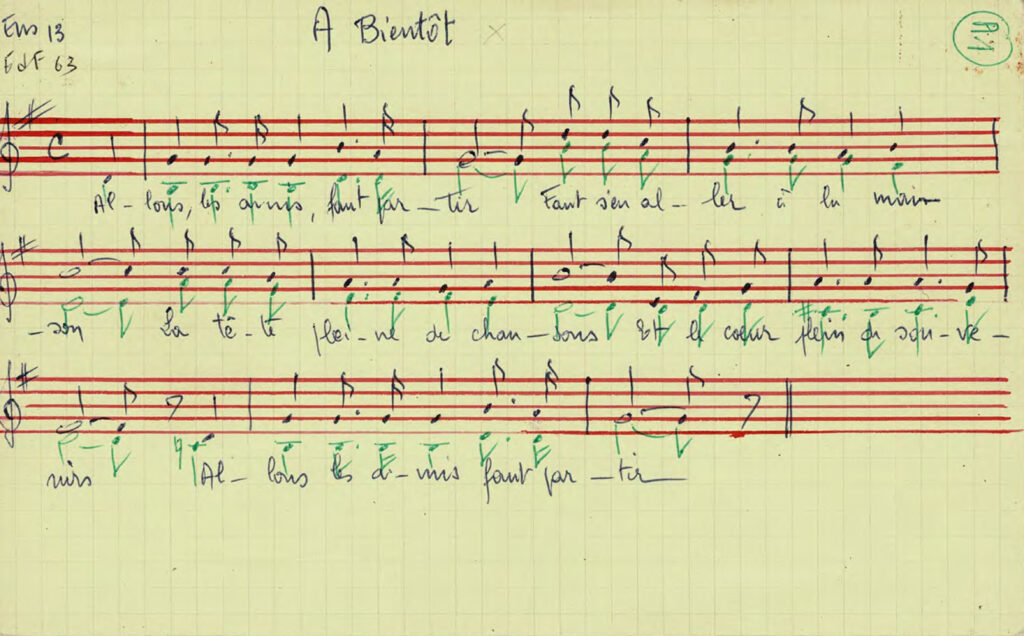 Ens 13
EdF 63
A Bientôt
A1
Al-lons, les amis, faut par-tir Faut s'en al-ler à la mai
-son La tê-te plei-ne de chan-sons Et le cœur plein de sou-ve-
nirs Al-lons les a-mis faut par-tir